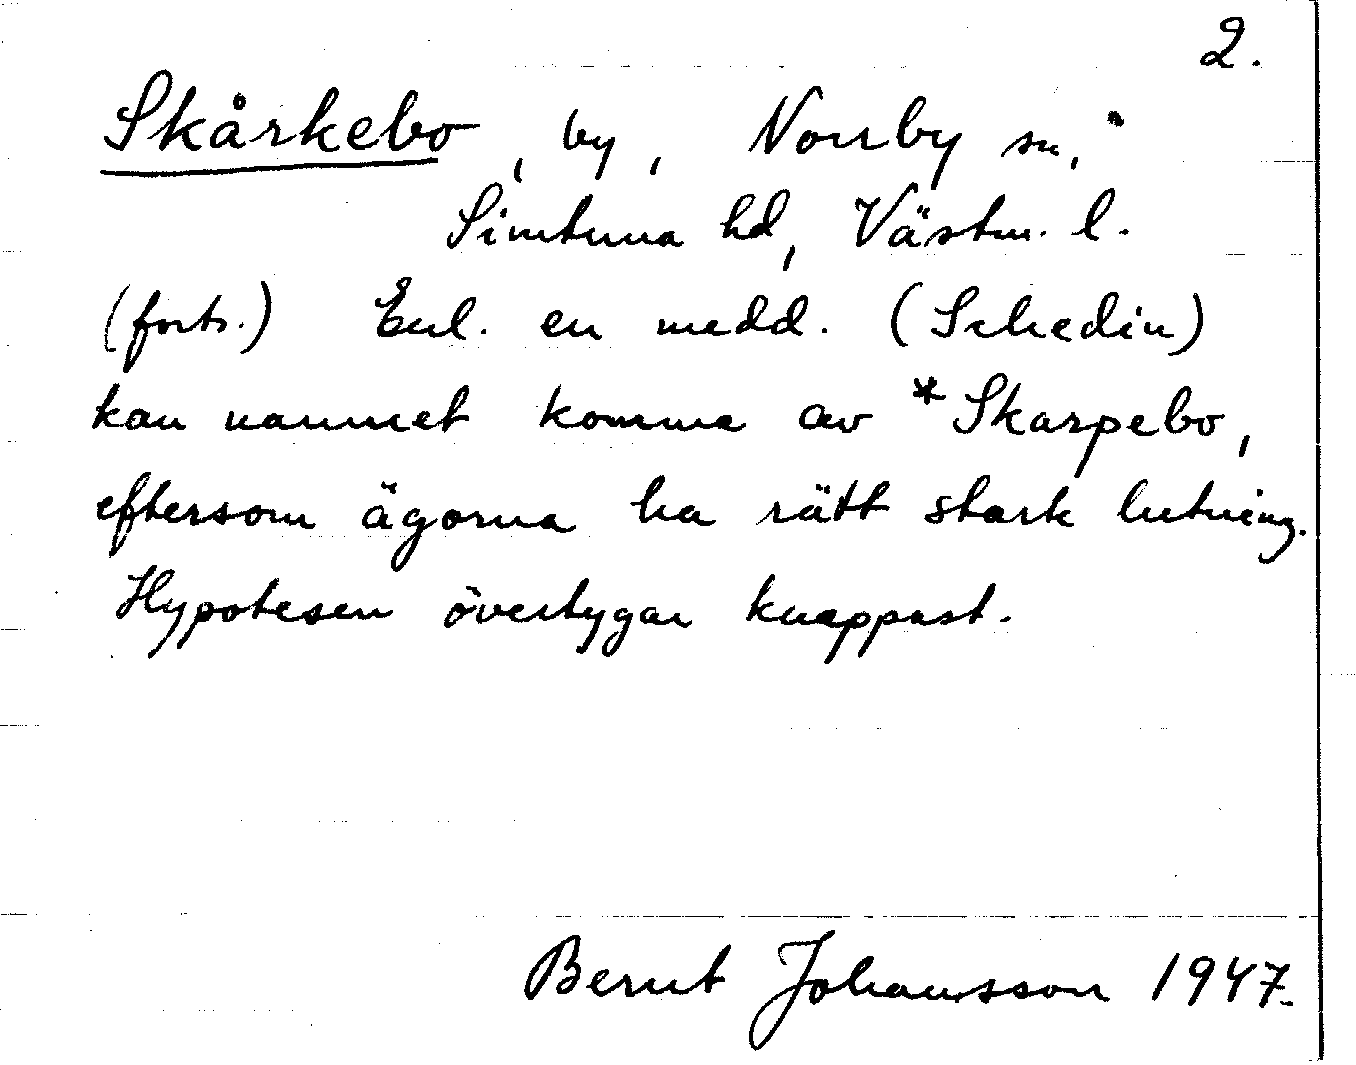 2.
Skårkebo, by, Norrby sn,
Simtuna hd, Västm. l.
(forts.) Enl. en medd. (Schedin)
kan namnet komma av *Skarpebo,
eftersom ägorna ha rätt stark lutning.
Hypotesen övertygar knappast.
Bernt Johansson 1947.